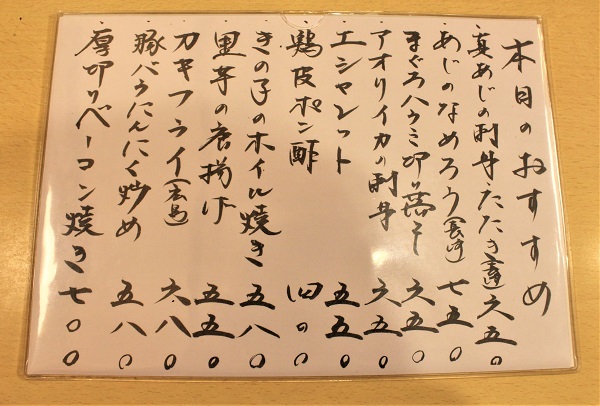 本日のおすすめ
真あじの刺身・たたき 六五〇
あじのなめろう(長崎) 七五〇
まぐろハラミ切り落そ 六五〇
アオリイカの刺身 六五〇
エシャレット 五五〇
鶏皮ポン酢 四〇〇
きの子のホイル焼き 五八〇
里芋の唐揚げ 五五〇
カキフライ(広島) 六八〇
豚バラにんにく炒め 五八〇
厚切りベーコン焼き 七〇〇